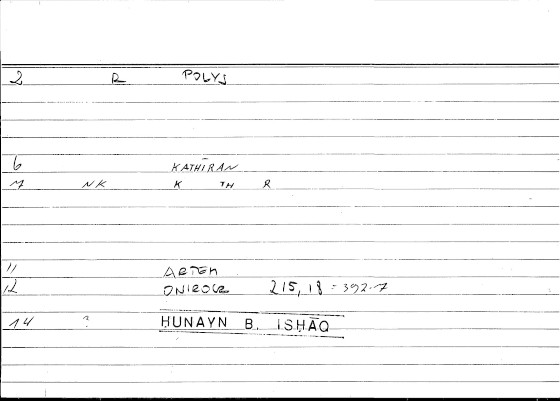 2 R POLYS
6 KATHĪRAN
7 NK K TH R
11 ARTEM
12 ONIROCR 215,18 = 392.7
14 ? ḤUNAYN B. ISḤĀQ